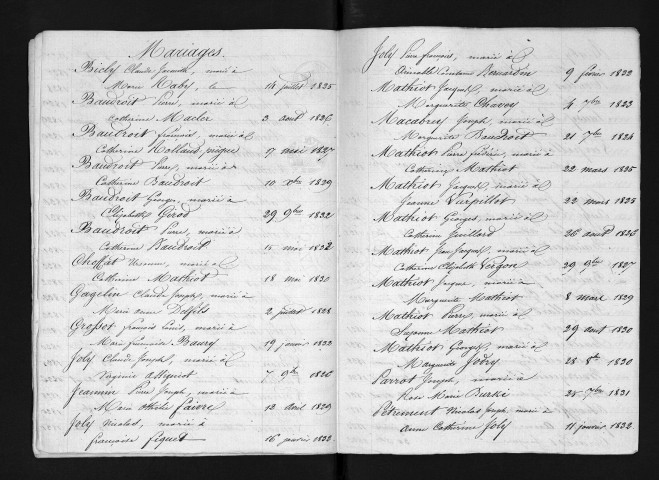 Mariages.
Claude marié à
Marie Haby, le 14 juillet 1825
Baudroit Pierre, marié à
Catherine Macler 3 août 1826
Baudroit marié à
Catherine 9 mai 1827
Baudroit Pierre, marié à
Catherine Baudroit 10 Xbre 1829
Baudroit Georges, marié à
Elizabeth Girod 29 9bre 1822
Baudroit Pierre, marié à
Catherine Baudroit 15 mai 1832
Choffat marié à
Catherine Mathiot 18 mai 1830
Gagelin Claude Joseph, marié à
Marie anne Delfils 2 juillet 1828
Grosset françois Louis, marié à
Marie françoise Baury 19 janvier 1832
Joly Claude Joseph, marié à
Virginie 7 9bre 1826
Jeannin Pierre Joseph, marié à
Marie Faivre 12 avril 1829
Joly Nicolas, marié à
françoise Piquet 16 janvier 1832
Joly Pierre françois, marié à
Bernardin 9 février 1822
Mathiot Jacques, marié à
Marguerite Chavey 4 7bre 1823
Macabrey Joseph, marié à
Marguerite Baudroit 21 7bre 1824
Mathiot Pierre frédéric, marié à
Catherine Mathiot 22 mars 1825
Mathiot Jacques, marié à
Jeanne Surpillot 22 mars 1825
Mathiot Georges, marié à
Catherine Juillard 26 août 1826
Mathiot Jean Jacques, marié à
Catherine Elizabeth Vergon 29 9bre 1827
Mathiot Jacques, marié à
Marguerite Mathiot 8 mars 1829
Mathiot Pierre, marié à
Suzanne Mathiot 29 août 1830
Mathiot Georges, marié à
Marguerite Jodry 28 8bre 1830
Parrot Joseph, marié à
Rose Marie Burké 25 7bre 1831
Petrement Nicolas Joseph, marié à
Anne Catherine Joly 11 janvier 1832